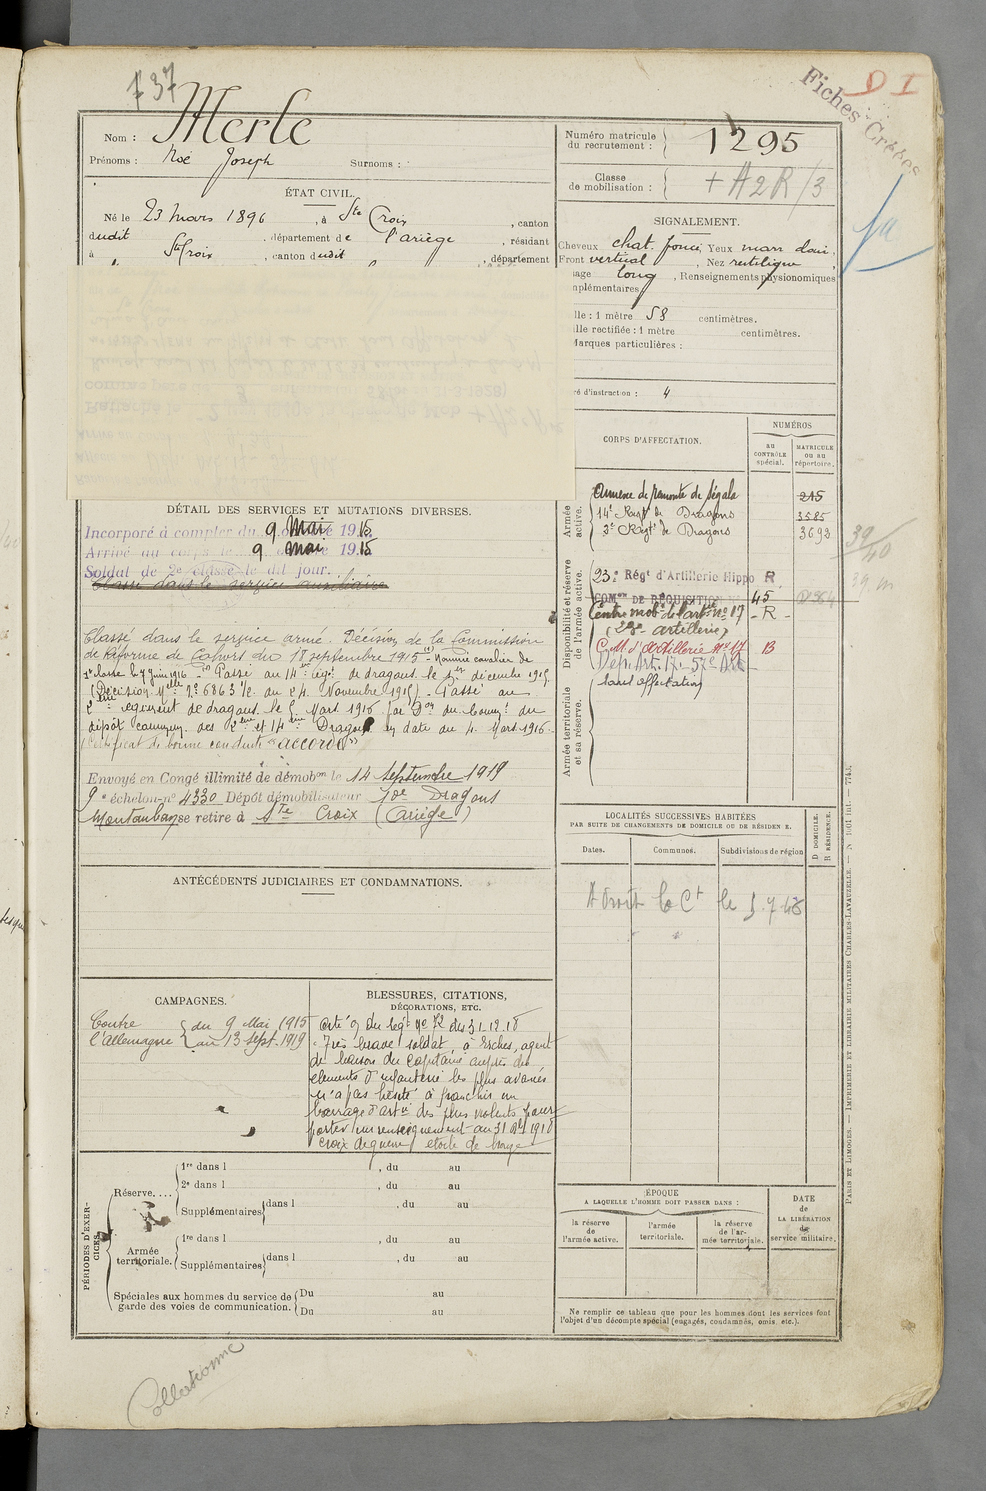 737
D I
Fiches Créées
Nom : Merle
Prénoms : Noé Joseph Surnoms :
ÉTAT CIVIL.
Né le 23 mars 1896, à Ste Croix, canton
dudit, département de l'ariège, résidant
à St Croix, canton dudit, département
Numéro matricule
du recrutement : 1295
Classe
de mobilisation : + A2R/3
SIGNALEMENT.
Cheveux chat. foncé, Yeux marr
Front vertical, Nez rectiligne,
sage long, Renseignements physionomiques
mplémentaires
lle : 1 mètre 58 centimètres.
ille rectifiée : 1 mètre centimètres.
Marques particulières :
ré d'instruction : 4
DÉTAIL DES SERVICES ET MUTATIONS DIVERSES.
Incorporé à compter du 9 Mai 1915
Arrivé au corps le 9 mai 1915
Soldat de 2e classe le dit jour.
Classé dans le service auxiliaire
Classé dans le service armé. Décision de la Commission
de Réforme de Cahors du 18 septembre 1915 - Nommé cavalier de
1re classe le 7 juin 1916 - Passé au 14e régt de dragons le 1er décembre 1915
(Décision Mlle No 6863 1/2 du 24 Novembre 1915) - Passé au
2ème régiment de dragons le 5 Mars 1916 par Don du Commt du
dépôt commun des 2ème et 14ème Dragons en date du 4 Mars 1916.
Certificat de bonne conduite "accordé"
Envoyé en Congé illimité de démobon le 14 Septembre 1919
9e échelon no 4330 Dépôt démobilisateur 10e Dragons
Montauban se retire à Ste Croix (Ariège)
CORPS D'AFFECTATION.
NUMÉROS
au
CONTRÔLE
spécial.
MATRICULE
ou au
répertoire.
Armée
active.
Annexe de remonte de Ségala 215
14e Régt de Dragons 3585
2e Régt de Dragons 3693
39/40
Disponibilité et réserve
de l'armée active.
23e Régt d'Artillerie Hippo R
COMon DE RÉQUISITION No 45
Centre mobe de l'artie no 17 - R -
artillerie)
C.M. d'artillerie no 17 B
Armée territoriale
et sa réserve.
sans affectation
ANTÉCÉDENTS JUDICIAIRES ET CONDAMNATIONS.
LOCALITÉS SUCCESSIVES HABITÉES
PAR SUITE DE CHANGEMENTS DE DOMICILE OU DE RÉSIDENCE.
D DOMICILE.
R RÉSIDENCE.
Dates. Communes. Subdivisions de région
A Droit la Ct le 5.7.48
CAMPAGNES.
Contre
l'Allemagne
du 9 Mai 1915
au 13 Sept. 1919
BLESSURES, CITATIONS,
DÉCORATIONS, ETC.
Cité O/ du régt no 72 du 31.12.18
"Très brave soldat, à Esches, agent
de liaison du Capitaine auprès des
éléments d'infanterie les plus avancés
n'a pas hésité à franchir un
barrage d'artie des plus violents pour
porter un renseignement au 31 8bre 1918
Croix de guerre étoile de bronze
PÉRIODES D'EXERCICES.
Réserve....
1re dans l , du au
2e dans l , du au
Supplémentaires dans l , du au
Armée
territoriale.
1re dans l , du au
Supplémentaires dans l , du au
Spéciales aux hommes du service de
garde des voies de communication.
Du au
Du au
ÉPOQUE
A LAQUELLE L'HOMME DOIT PASSER DANS :
la réserve
de
l'armée active.
l'armée
territoriale.
la réserve
de l'ar-
mée territoriale.
DATE
de
LA LIBÉRATION
du
service militaire.
Ne remplir ce tableau que pour les hommes dont les services font
l'objet d'un décompte spécial (engagés, condamnés, omis, etc.).
PARIS ET LIMOGES. — IMPRIMERIE ET LIBRAIRIE MILITAIRES CHARLES-LAVAUZELLE. — N° 1001 int. — 7745.
Collationné